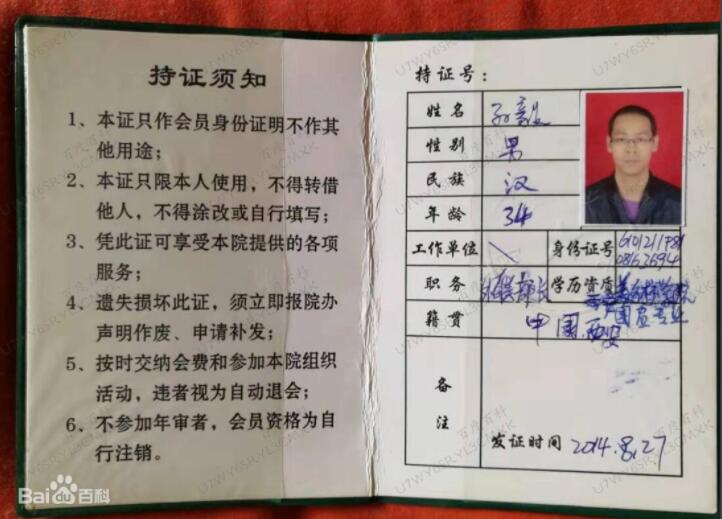 持证须知
1、本证只作会员身份证明不作其
他用途；
2、本证只限本人使用，不得转借
他人，不得涂改或自行填写；
3、凭此证可享受本院提供的各项
服务；
4、遗失损坏此证，须立即报院办
声明作废、申请补发；
5、按时交纳会费和参加本院组织
活动，违者视为自动退会；
6、不参加年审者，会员资格为自
行注销。
Bai百科
持证号：
姓名 孙毅
性别 男
民族 汉
年龄 34
工作单位 身份证号
职务 学历资质
籍贯 中国.西安
备注
发证时间 2014.8.27
百度百科
U7WY6SRYL3GMXK